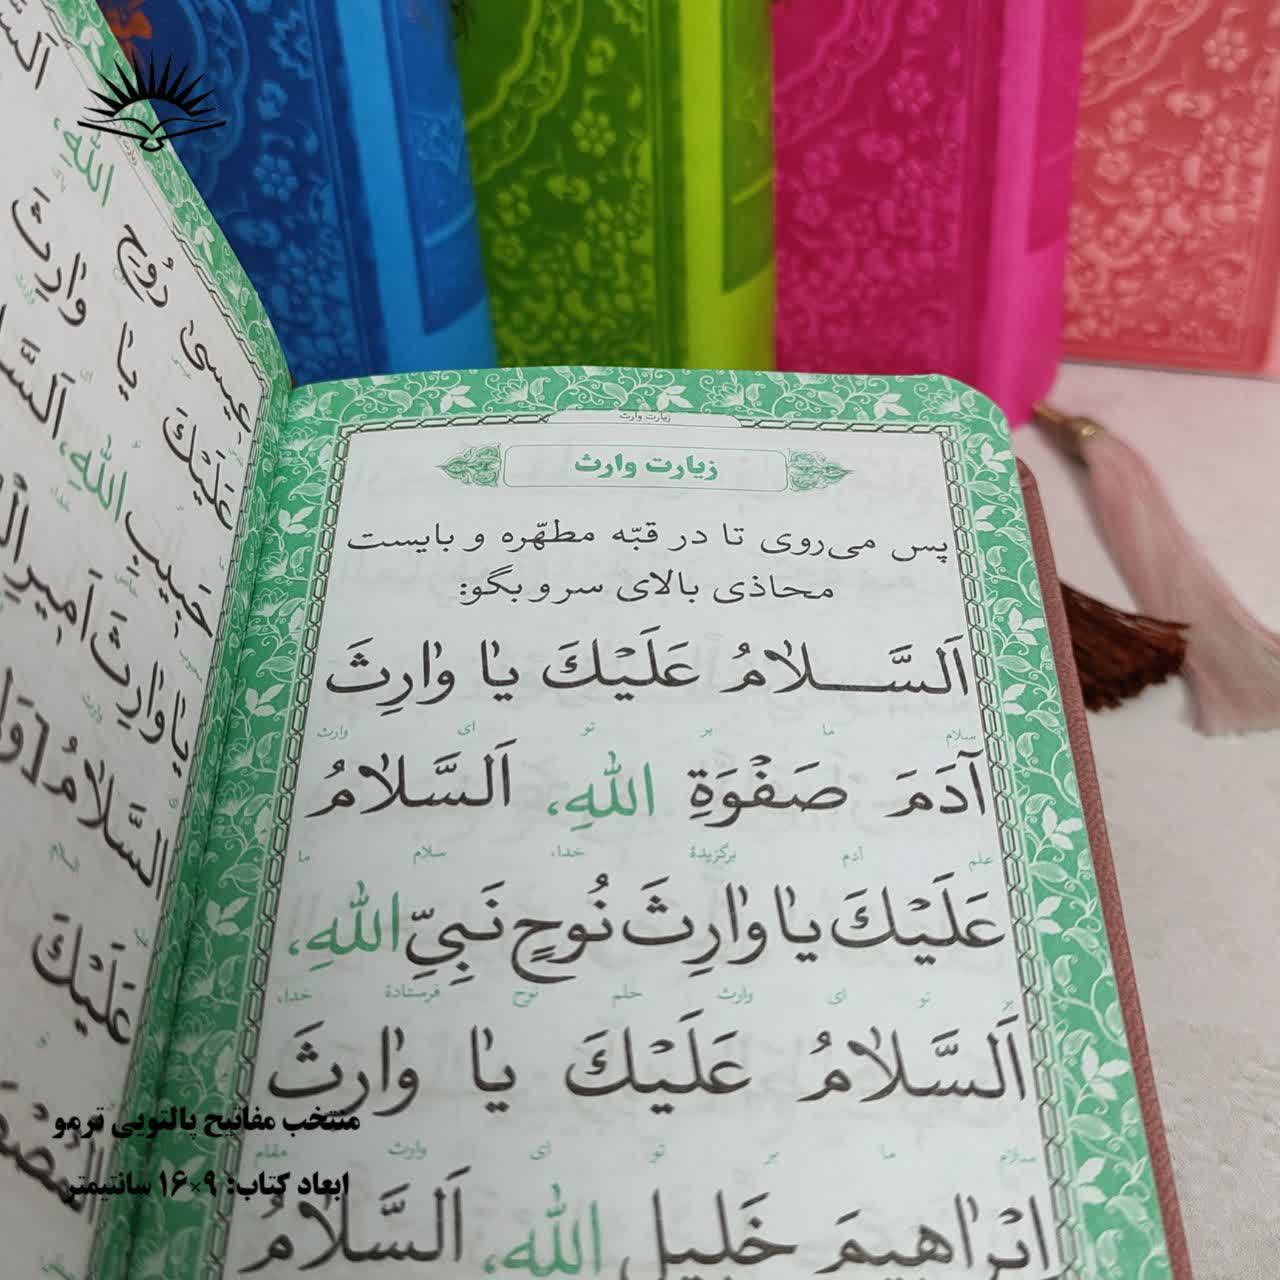 زیارت وارث
زیارت وارث
پس می‌روی تا در قبّه مطهّره و بایست
محاذی بالای سر و بگو:
اَلسَّلامُ عَلَيْكَ يا وارِثَ
سلام ما بر تو ای وارث
آدَمَ صَفْوَةِ اللهِ، اَلسَّلامُ
علم آدم برگزیدهٔ خداء، سلام ما
عَلَيْكَ يا وارِثَ نُوحٍ نَبِيِّ اللهِ،
بر تو ای وارث حلم نوح فرستادهٔ خداء،
اَلسَّلامُ عَلَيْكَ يا وارِثَ
سلام ما بر تو ای وارث مقام
اِبْراهيمَ خَليلِ اللهِ، اَلسَّلامُ
اللهِ،
رُوحِ
عيسىٰ
وارِثَ
يا
عَلَيْكَ
اَلسَّ
اللهِ،
حَبيبِ
يا وارِثَ اَميرِ
اَلسَّلامُ
عَلَيْكَ
منتخب مفاتیح پالتویی ترمو
ابعاد کتاب: ۹×۱۶ سانتیمتر